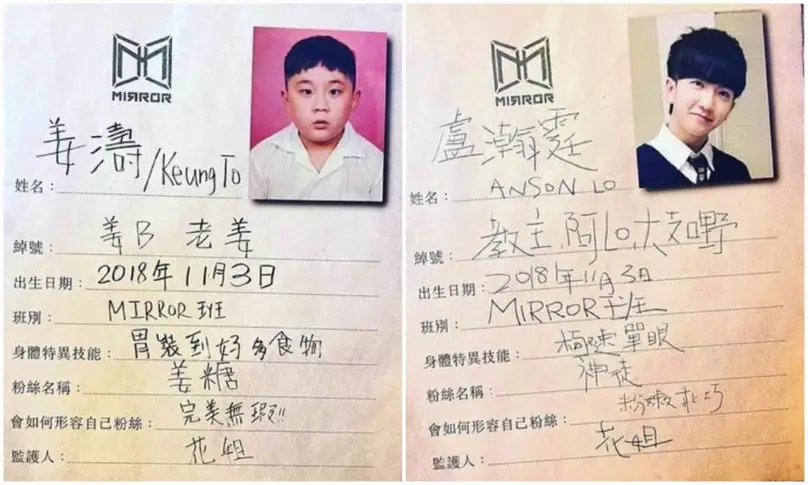 MIRROR
姜濤/Keung To
姓名：
綽號： 姜B 老姜
出生日期： 2018年11月3日
班別： MIRROR班
身體特異技能： 胃裝到好多食物
粉絲名稱： 姜糖
會如何形容自己粉絲： 完美無瑕!!
監護人： 花姐
MIRROR
盧瀚霆
姓名： ANSON LO
綽號： 教主,阿Lo,大支嘢
出生日期： 2018年11月3日
班別： MIRROR班
身體特異技能： 極速單眼
粉絲名稱： 神徒
會如何形容自己粉絲： 粉嫩
監護人： 花姐